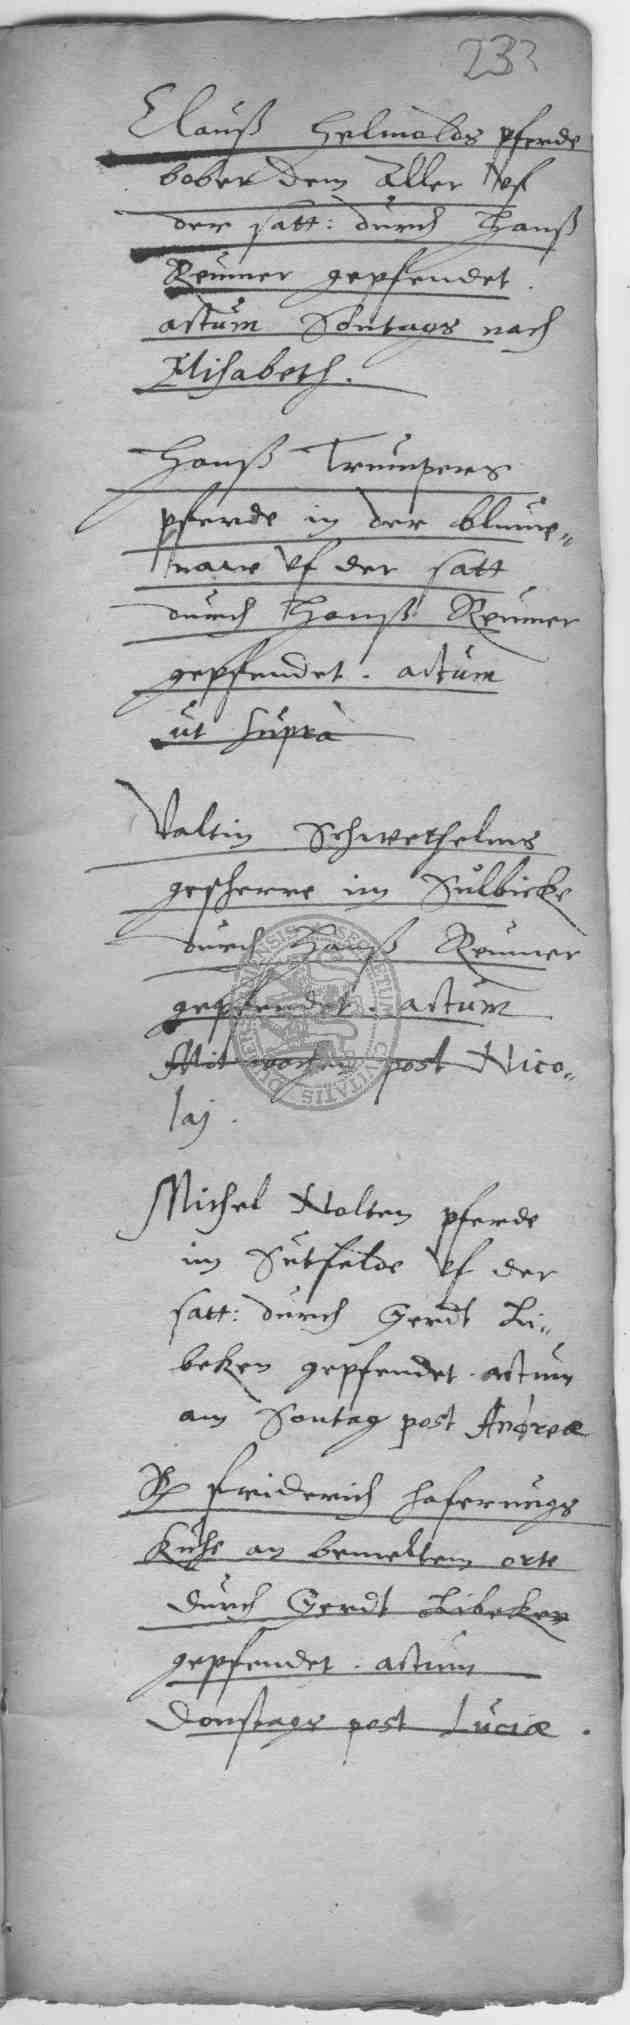 233
Clauß Helmolds pferde
bober dem Aller vf
der satt: durch Hanß
Reumer gepfendet.
actum Sontags nach
Elisabeth.
Hanß Trumpers
pferde in der blume-
naw vf der satt
durch Hanß Reumer
gepfendet. actum
ut supra
Valtin Schwethelms
gescherre im Sulbicke
durch Hanß Reumer
gepfendet. actum
Mitwochen post Nico-
laj.
Michel Nolten pferde
im Sutfelde vf der
satt: durch Gerdt Li-
beken gepfendet. actum
am Sontag post Andreæ
Friderich Haferungs
Kuhe an bemeltem orte
durch Gerdt Libeken
gepfendet. actum
Donstags post Luciæ.
SECRETUM CIVITATIS